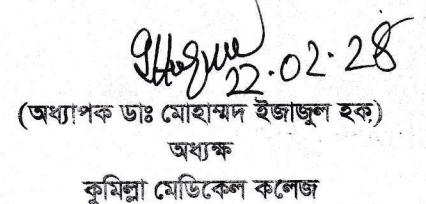 22.02.28
(অধ্যাপক ডাঃ মোহাম্মদ ইজাজুল হক)
অধ্যক্ষ
কুমিল্লা মেডিকেল কলেজ